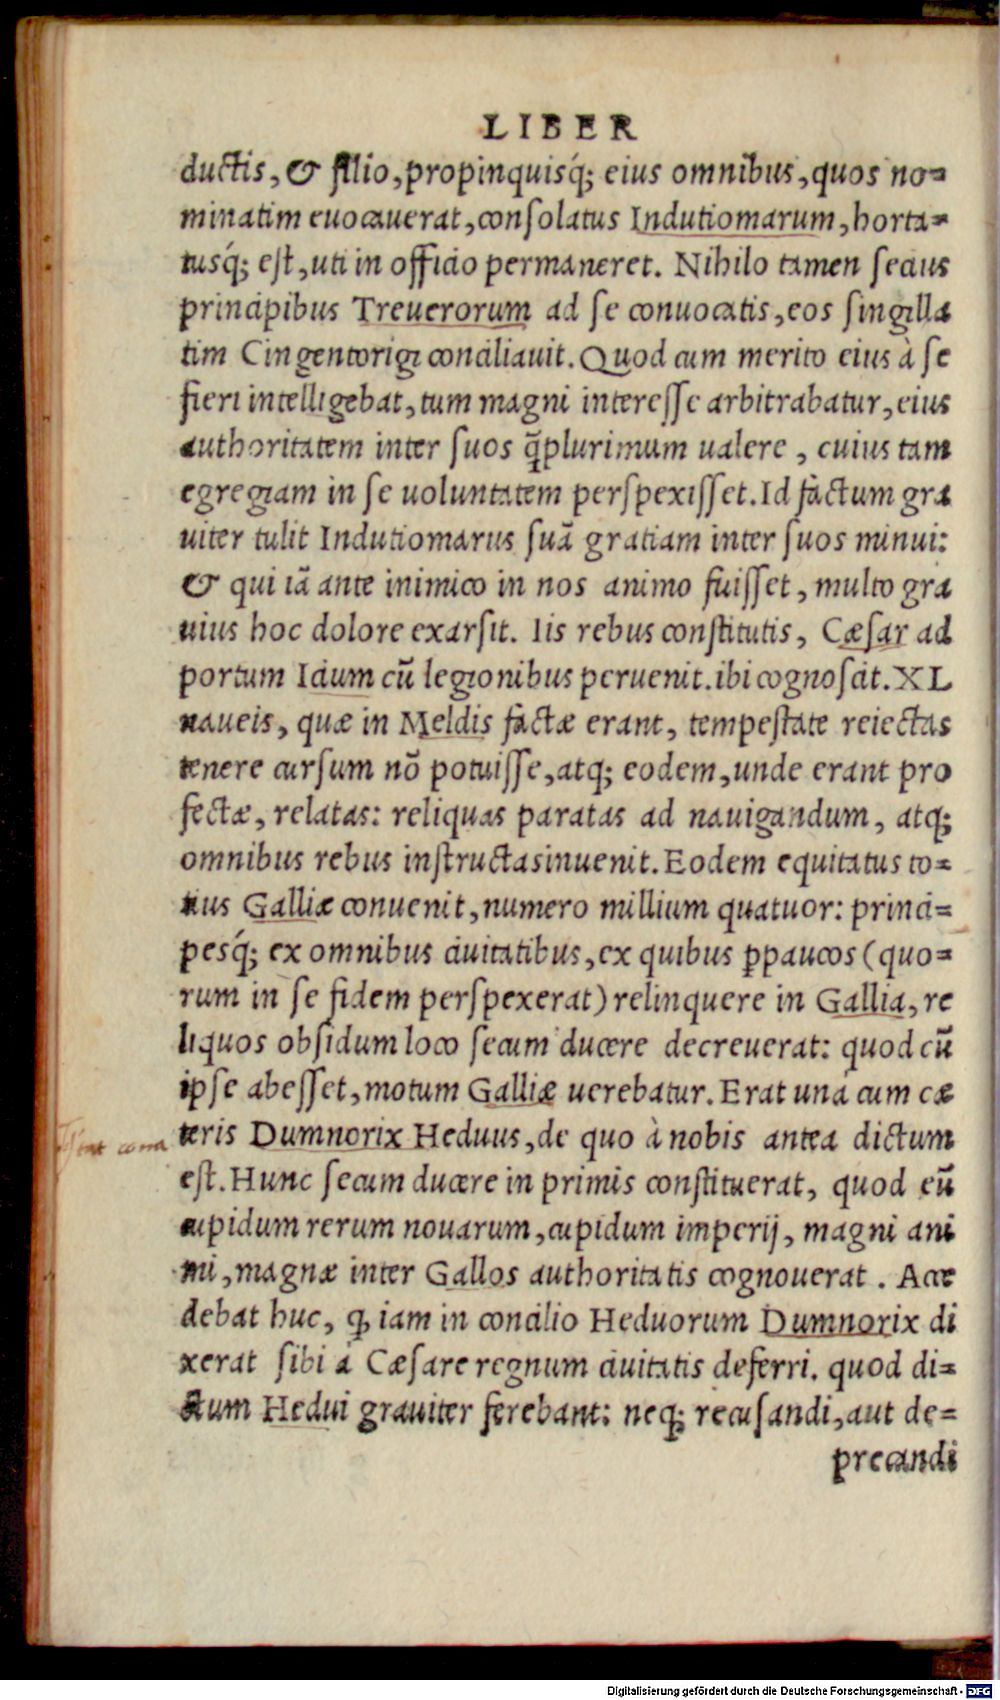 LIBER
ductis, & filio, propinquisq́; eius omnibus, quos no=
minatim euocauerat, consolatus Indutiomarum, horta=
tusq́; est, uti in officio permaneret. Nihilo tamen secius
principibus Treuerorum ad se conuocatis, eos singilla
tim Cingentorigi conciliauit. Quod cum merito eius à se
fieri intelligebat, tum magni interesse arbitrabatur, eius
authoritatem inter suos q̃plurimum ualere, cuius tam
egregiam in se uoluntatem perspexisset. Id factum gra
uiter tulit Indutiomarus suā gratiam inter suos minui:
& qui iā ante inimico in nos animo fuisset, multo gra
uius hoc dolore exarsit. Iis rebus constitutis, Cæsar ad
portum Icium cū legionibus peruenit. ibi cognoscit. XL
naueis, quæ in Meldis factæ erant, tempestate reiectas
tenere cursum nō potuisse, atq; eodem, unde erant pro
fectæ, relatas: reliquas paratas ad nauigandum, atq;
omnibus rebus instructas inuenit. Eodem equitatus to=
tius Galliæ conuenit, numero millium quatuor: princi=
pesq́; ex omnibus ciuitatibus, ex quibus ꝑpaucos (quo=
rum in se fidem perspexerat) relinquere in Gallia, re
liquos obsidum loco secum ducere decreuerat: quod cū
ipse abesset, motum Galliæ uerebatur. Erat unà cum cæ
teris Dumnorix Heduus, de quo à nobis antea dictum
est. Hunc secum ducere in primis constituerat, quod eū
cupidum rerum nouarum, cupidum imperij, magni ani
mi, magnæ inter Gallos authoritatis cognouerat. Acce
debat huc, ꝙ iam in concilio Heduorum Dumnorix di
xerat sibi à Cæsare regnum ciuitatis deferri. quod di=
ctum Hedui grauiter ferebant: neq; recusandi, aut de=
precandi
Digitalisierung gefördert durch die Deutsche Forschungsgemeinschaft - DFG